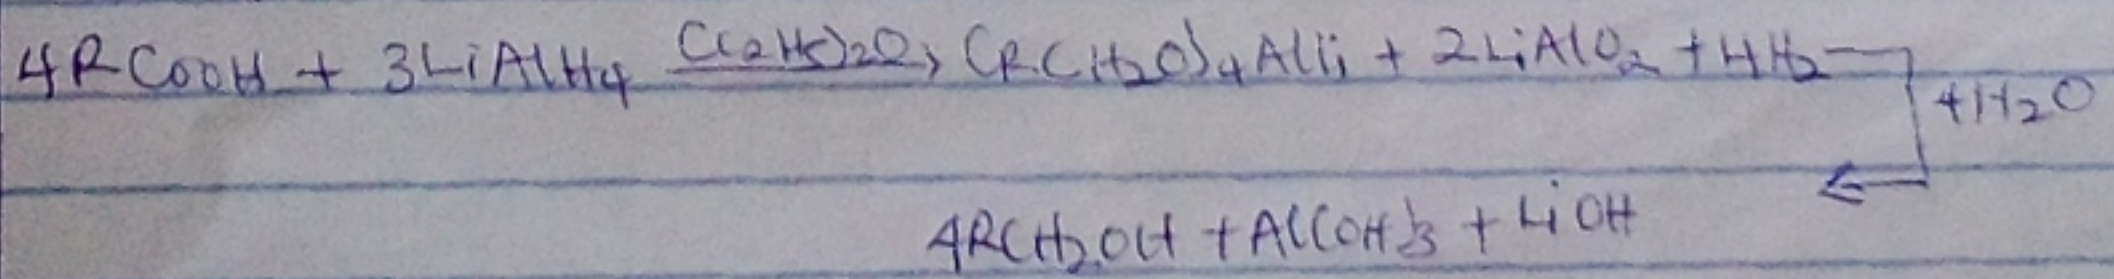 4RCOOH + 3LiAlH4 (C2H5)2O → (RCH2O)4AlLi + 2LiAlO2 + 4H2
+H2O
4RCH2OH + Al(OH)3 + LiOH